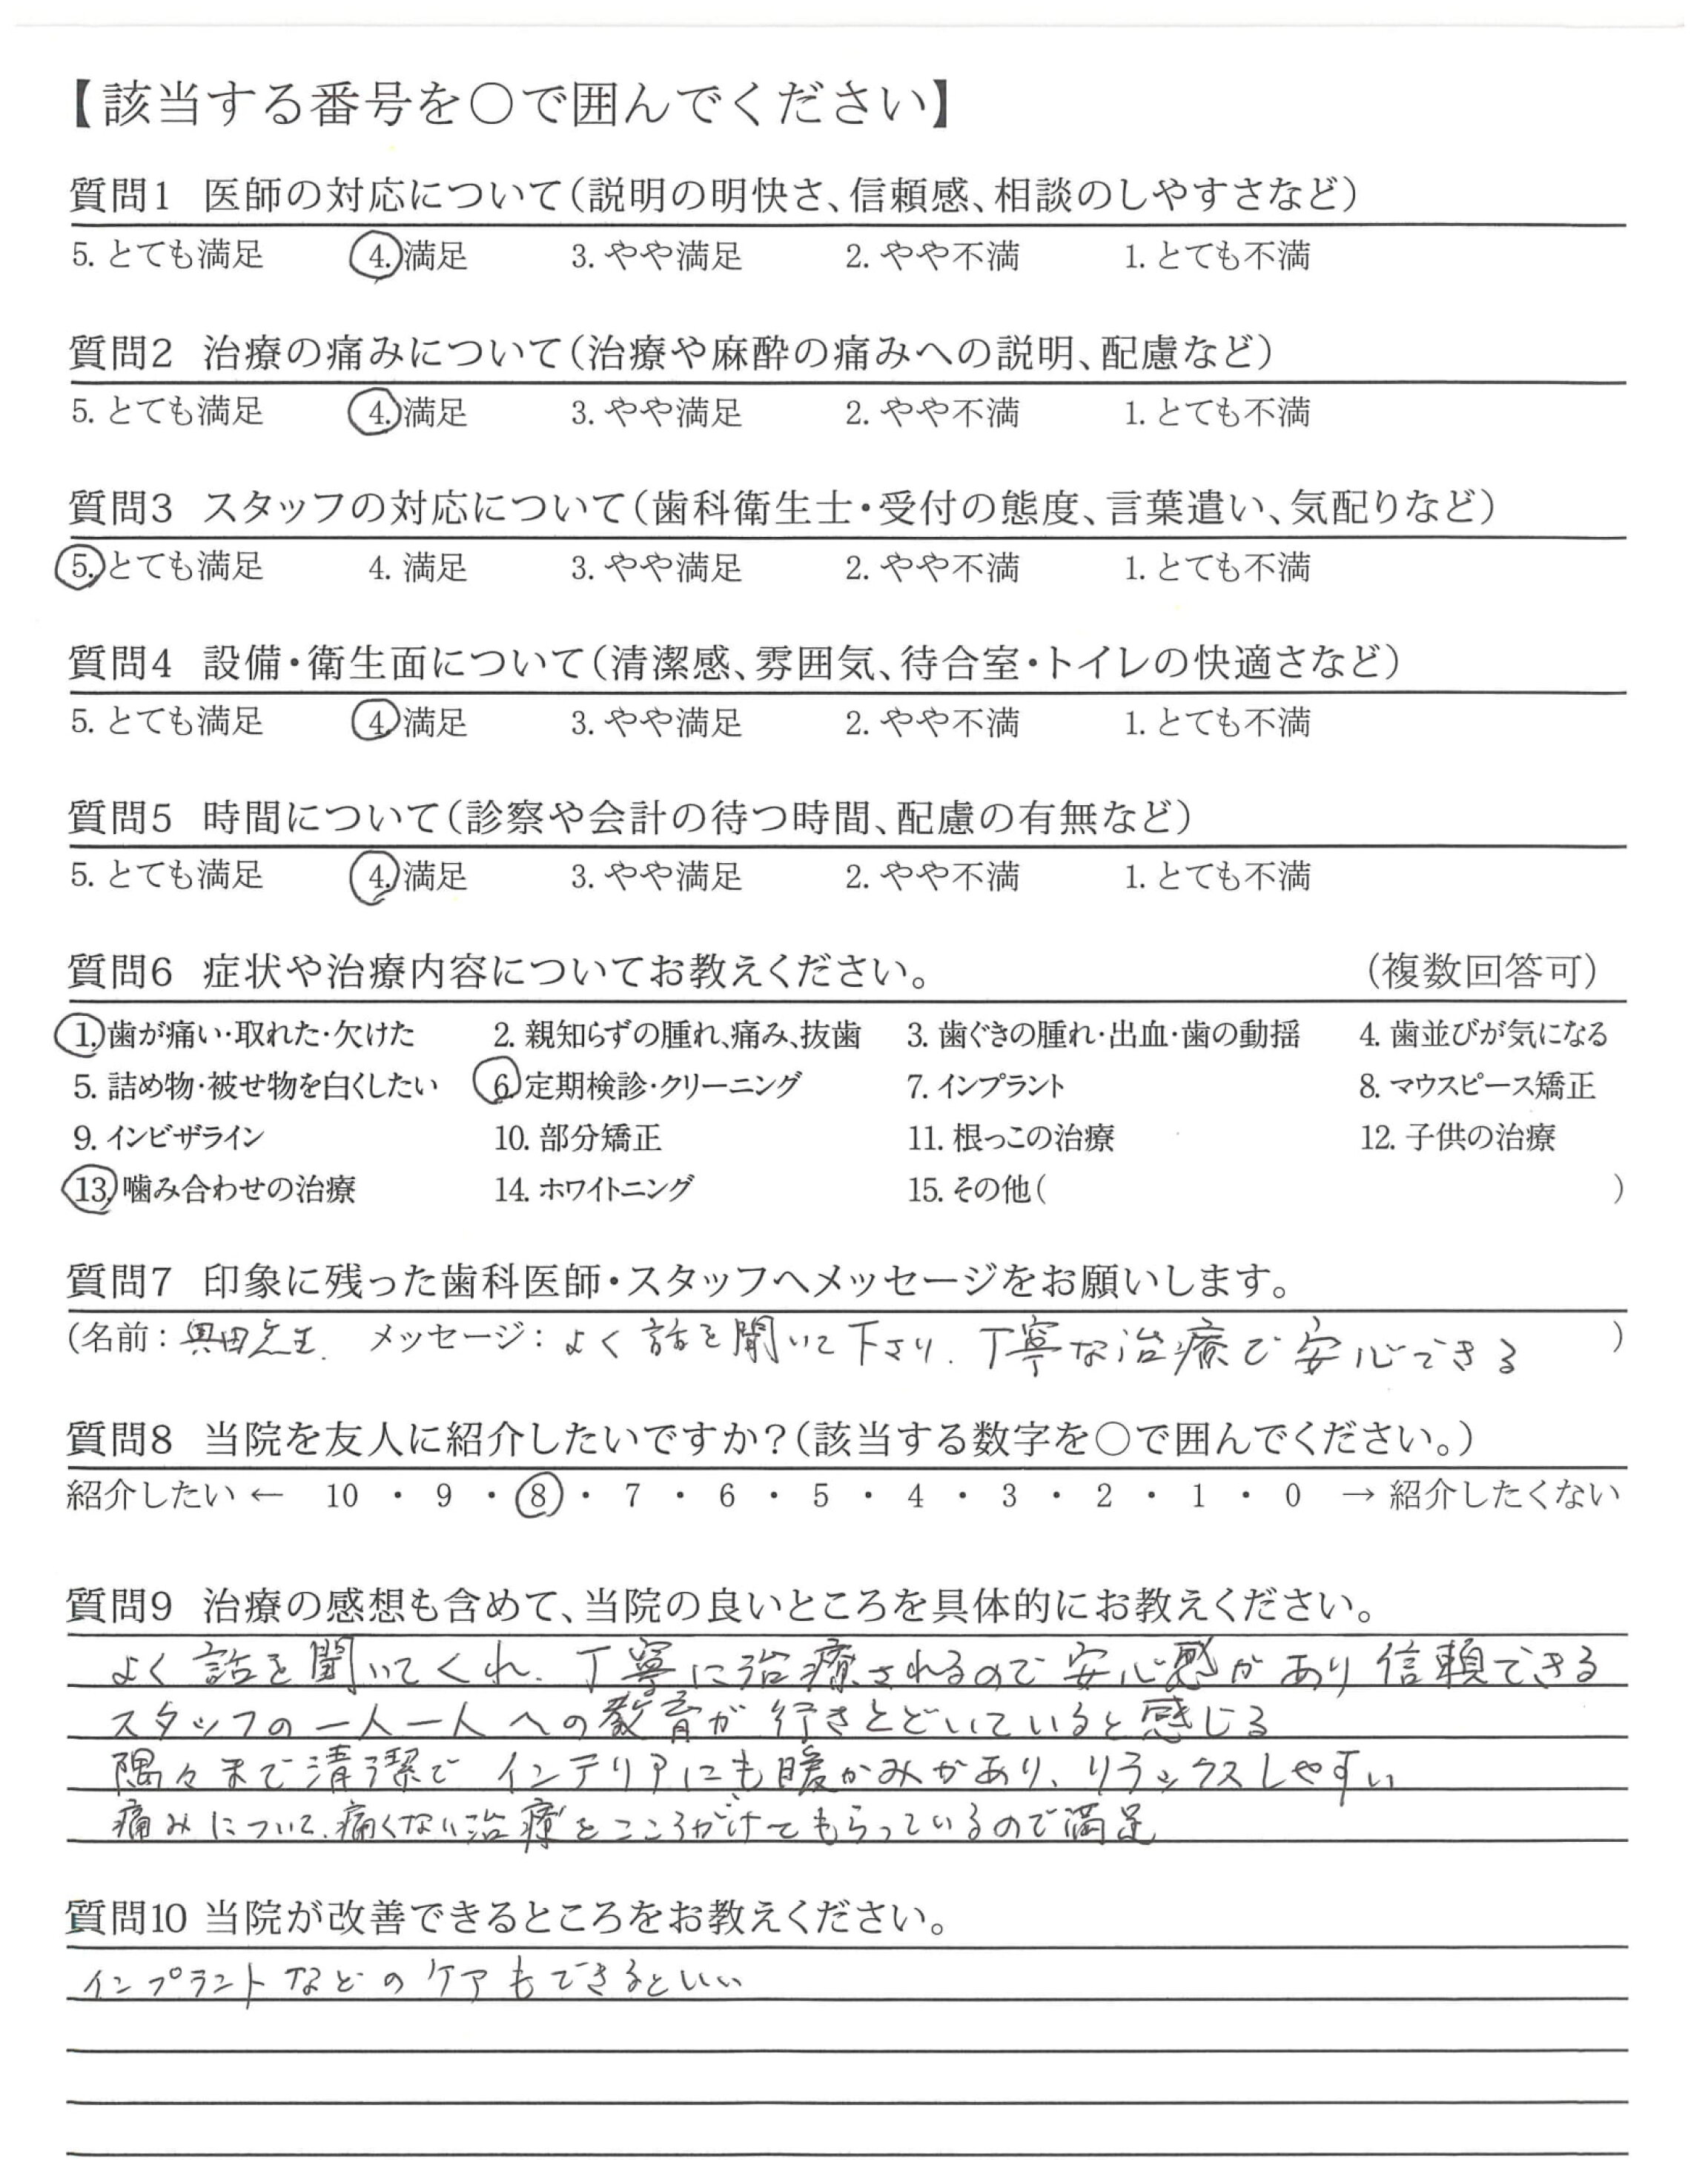 【該当する番号を○で囲んでください】
質問1 医師の対応について(説明の明快さ、信頼感、相談のしやすさなど)
5. とても満足 4. 満足 3. やや満足 2. やや不満 1. とても不満
質問2 治療の痛みについて(治療や麻酔の痛みへの説明、配慮など)
5. とても満足 4. 満足 3. やや満足 2. やや不満 1. とても不満
質問3 スタッフの対応について(歯科衛生士・受付の態度、言葉遣い、気配りなど)
5. とても満足 4. 満足 3. やや満足 2. やや不満 1. とても不満
質問4 設備・衛生面について(清潔感、雰囲気、待合室・トイレの快適さなど)
5. とても満足 4. 満足 3. やや満足 2. やや不満 1. とても不満
質問5 時間について(診察や会計の待つ時間、配慮の有無など)
5. とても満足 4. 満足 3. やや満足 2. やや不満 1. とても不満
質問6 症状や治療内容についてお教えください。 (複数回答可)
1. 歯が痛い・取れた・欠けた 2. 親知らずの腫れ、痛み、抜歯 3. 歯ぐきの腫れ・出血・歯の動揺 4. 歯並びが気になる
5. 詰め物・被せ物を白くしたい 6. 定期検診・クリーニング 7. インプラント 8. マウスピース矯正
9. インビザライン 10. 部分矯正 11. 根っこの治療 12. 子供の治療
13. 噛み合わせの治療 14. ホワイトニング 15. その他( )
質問7 印象に残った歯科医師・スタッフへメッセージをお願いします。
(名前:奥田先生. メッセージ:よく話を聞いて下さり、丁寧な治療で安心できる )
質問8 当院を友人に紹介したいですか?(該当する数字を○で囲んでください。)
紹介したい ← 10 ・ 9 ・ 8 ・ 7 ・ 6 ・ 5 ・ 4 ・ 3 ・ 2 ・ 1 ・ 0 → 紹介したくない
質問9 治療の感想も含めて、当院の良いところを具体的にお教えください。
よく話を聞いてくれ、丁寧に治療されるので安心感があり信頼できる
スタッフの一人一人への教育が行きとどいていると感じる
隅々まで清潔でインテリアにも暖かみがあり、リラックスしやすい
痛みについて、痛くない治療をこころがけてもらっているので満足
質問10 当院が改善できるところをお教えください。
インプラントなどのケアもできるといい